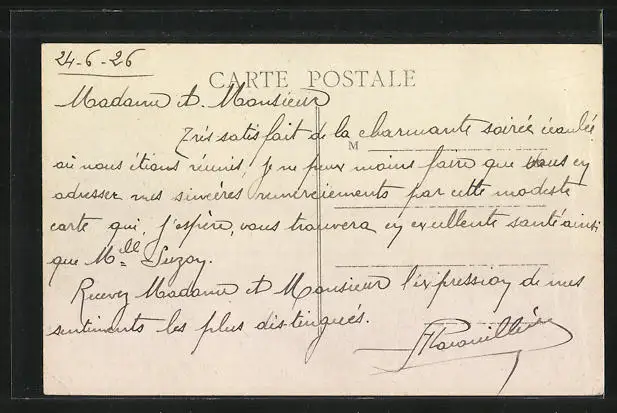 24-6-26
CARTE POSTALE
Madame et Monsieur
Très satisfait de la charmante soirée écoulée
M
où nous étions réunis, je ne peux moins faire que vous en
adresser mes sincères remerciements par cette modeste
carte qui, j'espère, vous trouvera en excellente santé ainsi
que Mlle Suzon.
Recevez Madame et Monsieur l'expression de mes
sentiments les plus distingués.